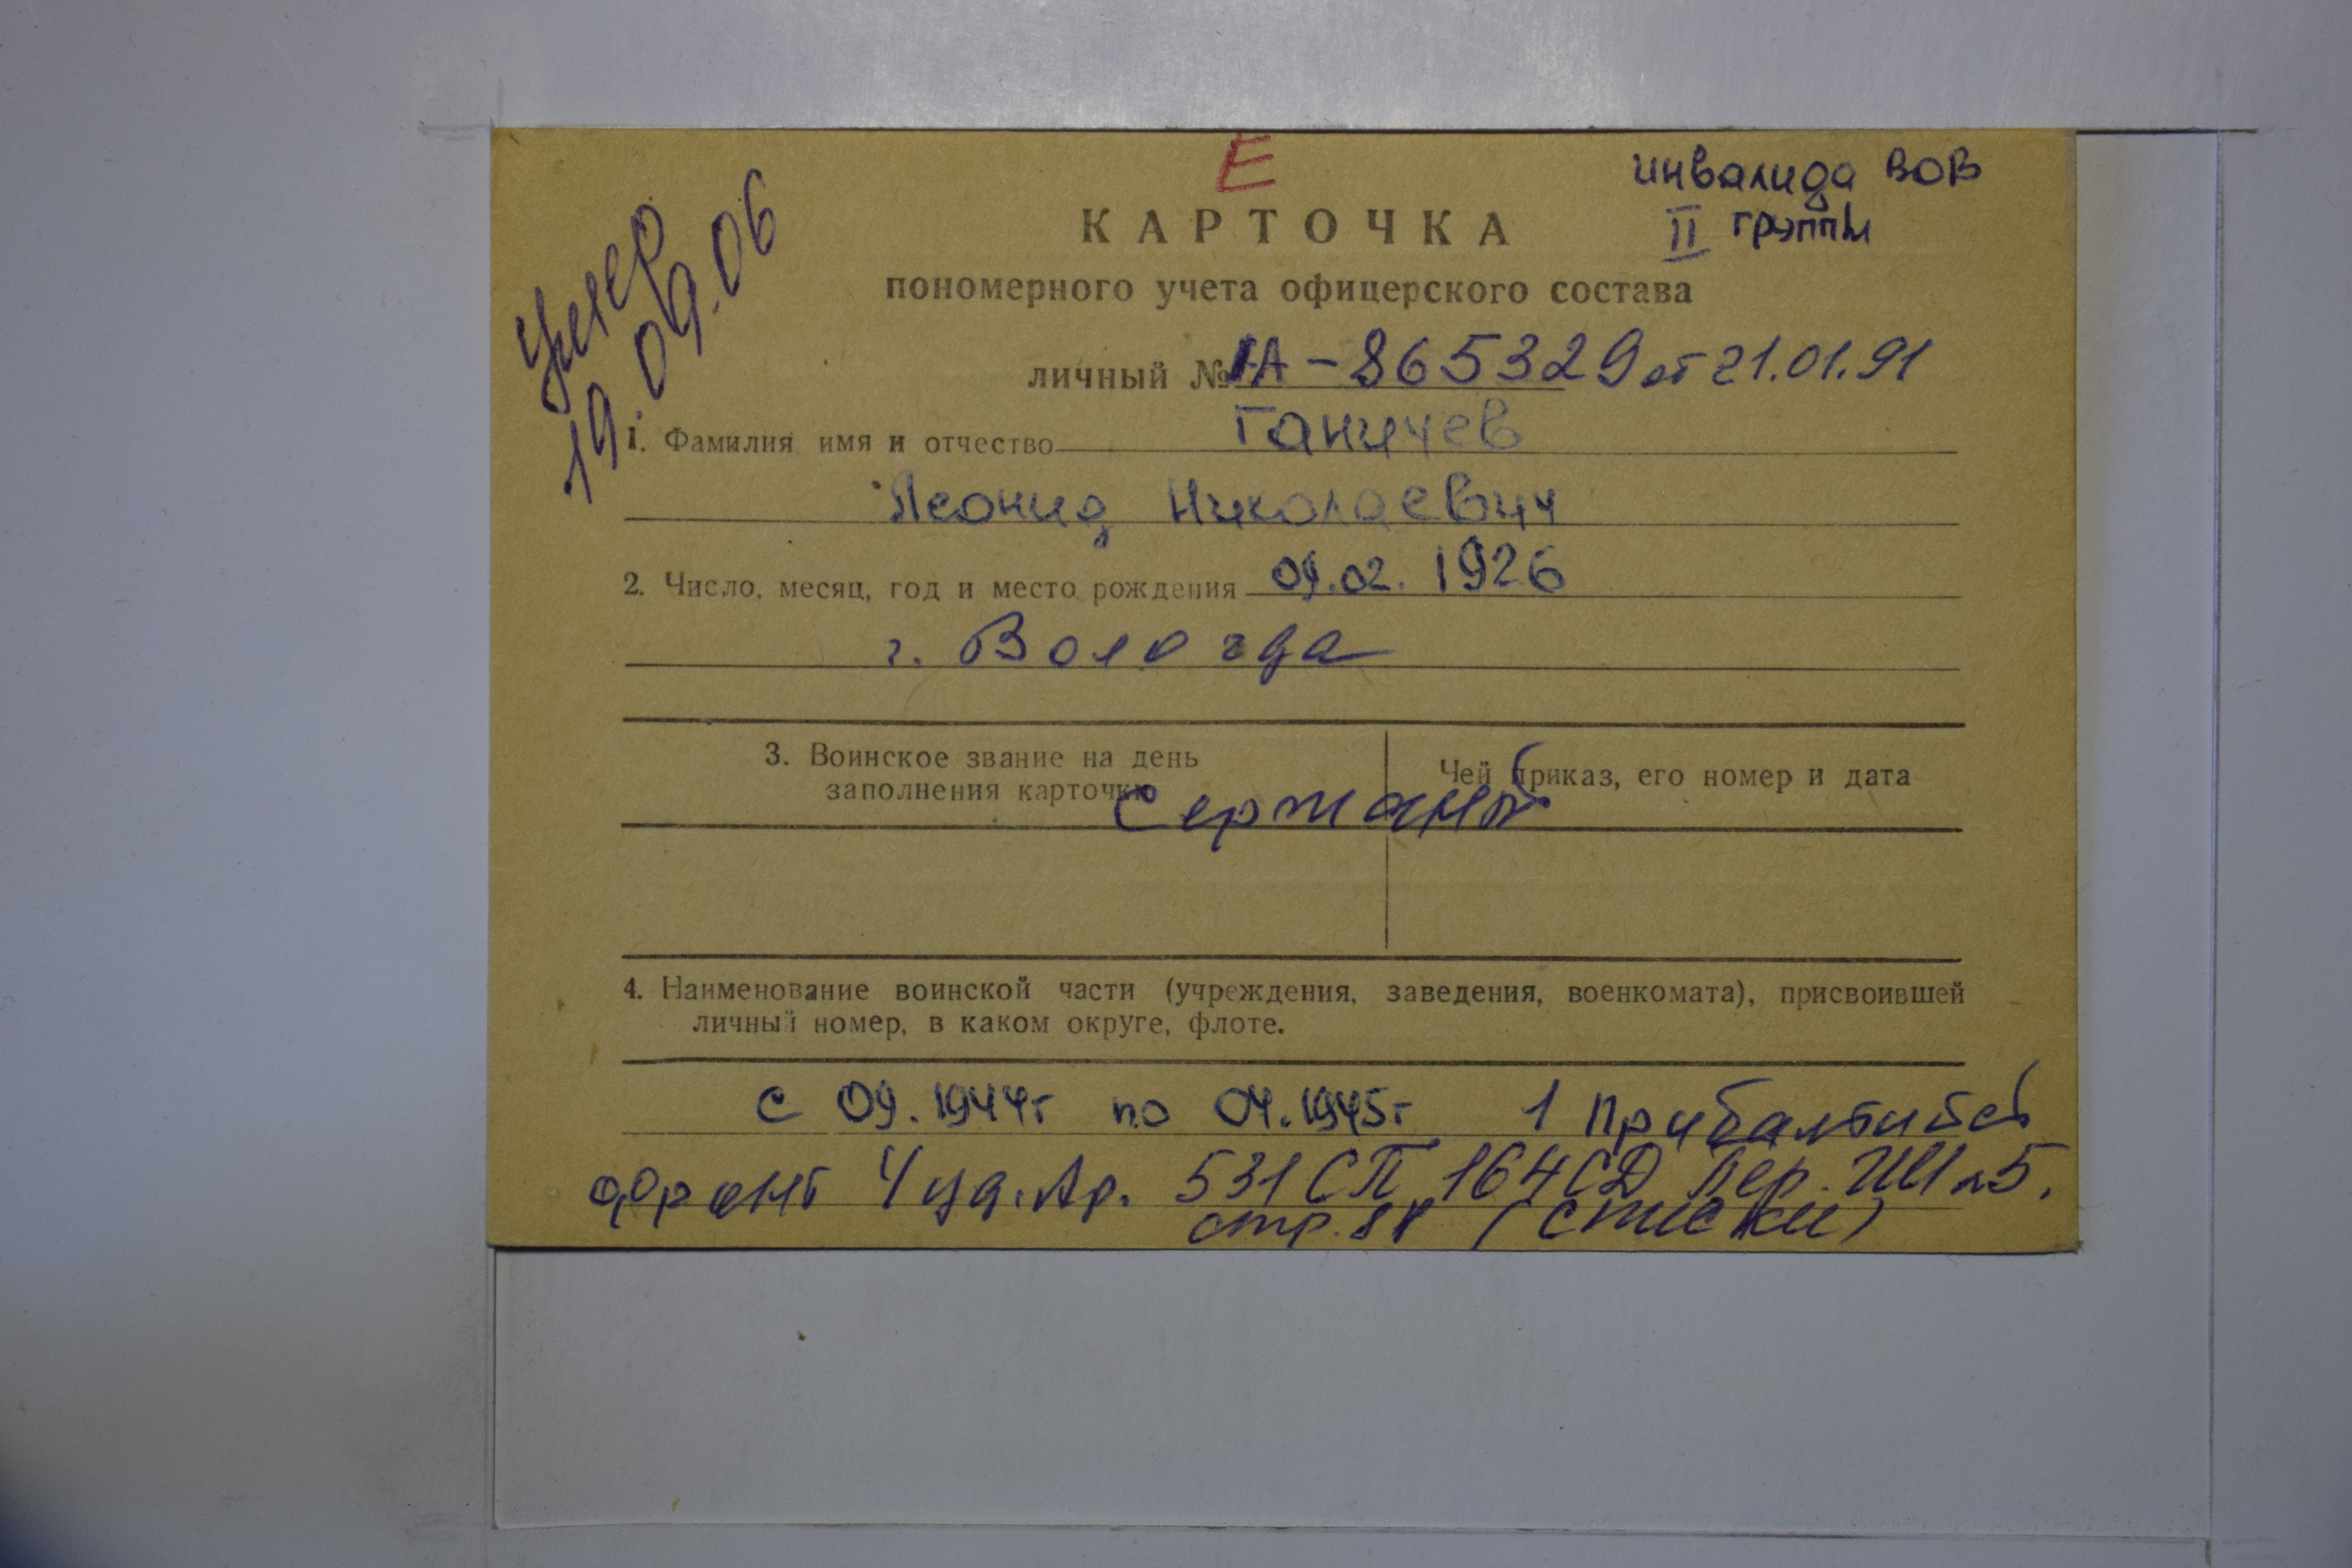 Е
инвалида ВОВ
II группы
Умер
19.09.06
КАРТОЧКА
пономерного учета офицерского состава
личный № 1А-865329 от 21.01.91
1. Фамилия имя и отчество Ганичев
Леонид Николаевич
2. Число, месяц, год и место рождения 09.02.1926
г. Вологда
3. Воинское звание на день
заполнения карточки
Чей приказ, его номер и дата
сержант
4. Наименование воинской части (учреждения, заведения, военкомата), присвоившей
личный номер, в каком округе, флоте.
с 09.1944г по 04.1945г 1 Прибалтийс
фронт 4 уд. Ар. 531 СП 164 СД пер. 5.
стр. (списки)